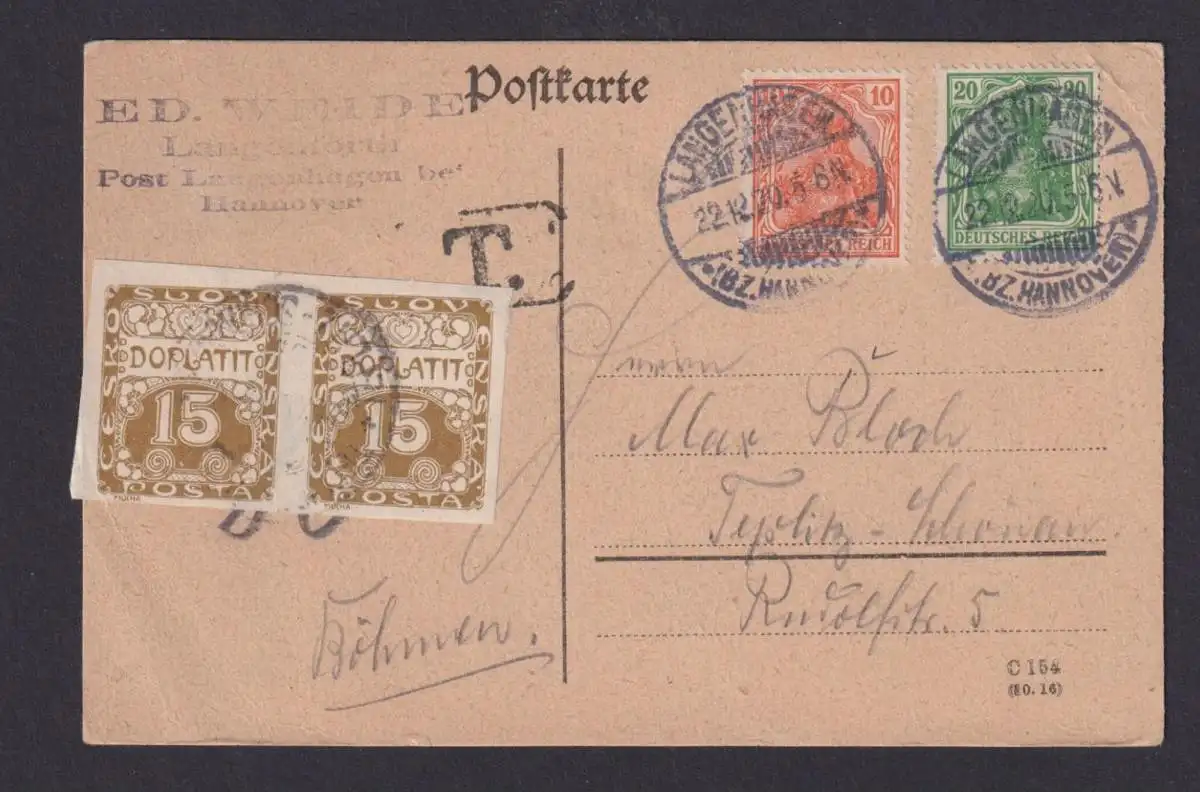 Poſtkarte
ED. WEIDE
Langenforth
Post Langenhagen bei
Hannover
T.
10
REICH
20 20
DEUTSCHES REICH
LANGENHAGEN
22.12.20.5-6N.
*(BZ.HANNOVER)*
LANGENHAGEN
22.12.20.5-6.V.
(BZ.HANNOVER)*
ČESKO SLOVENSKÁ
DOPLATIT
15
POŠTA
MUCHA
ČESKO SLOVENSKÁ
DOPLATIT
15
POŠTA
MUCHA
Herrn
Max Bloch
Teplitz-Schönau
Rudolfstr. 5
Böhmen.
C 154
(10. 16)